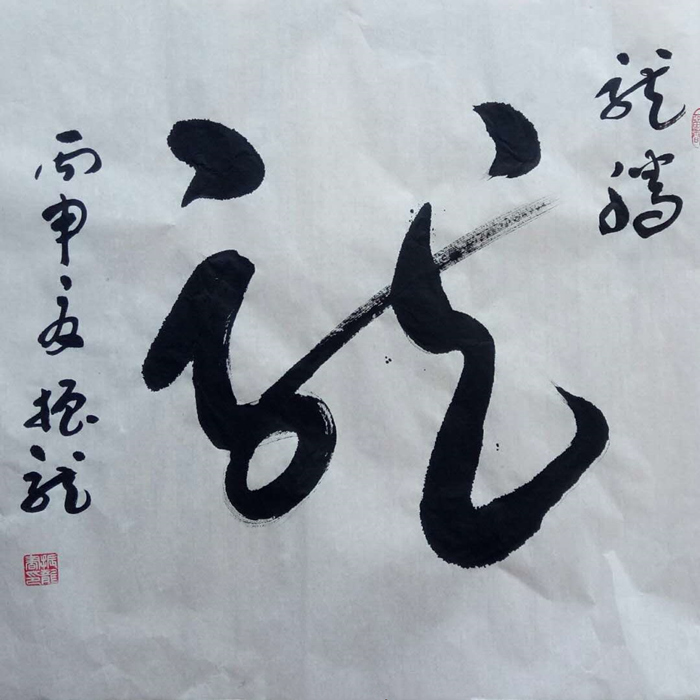 龍騰
龍
丙申夏振龍